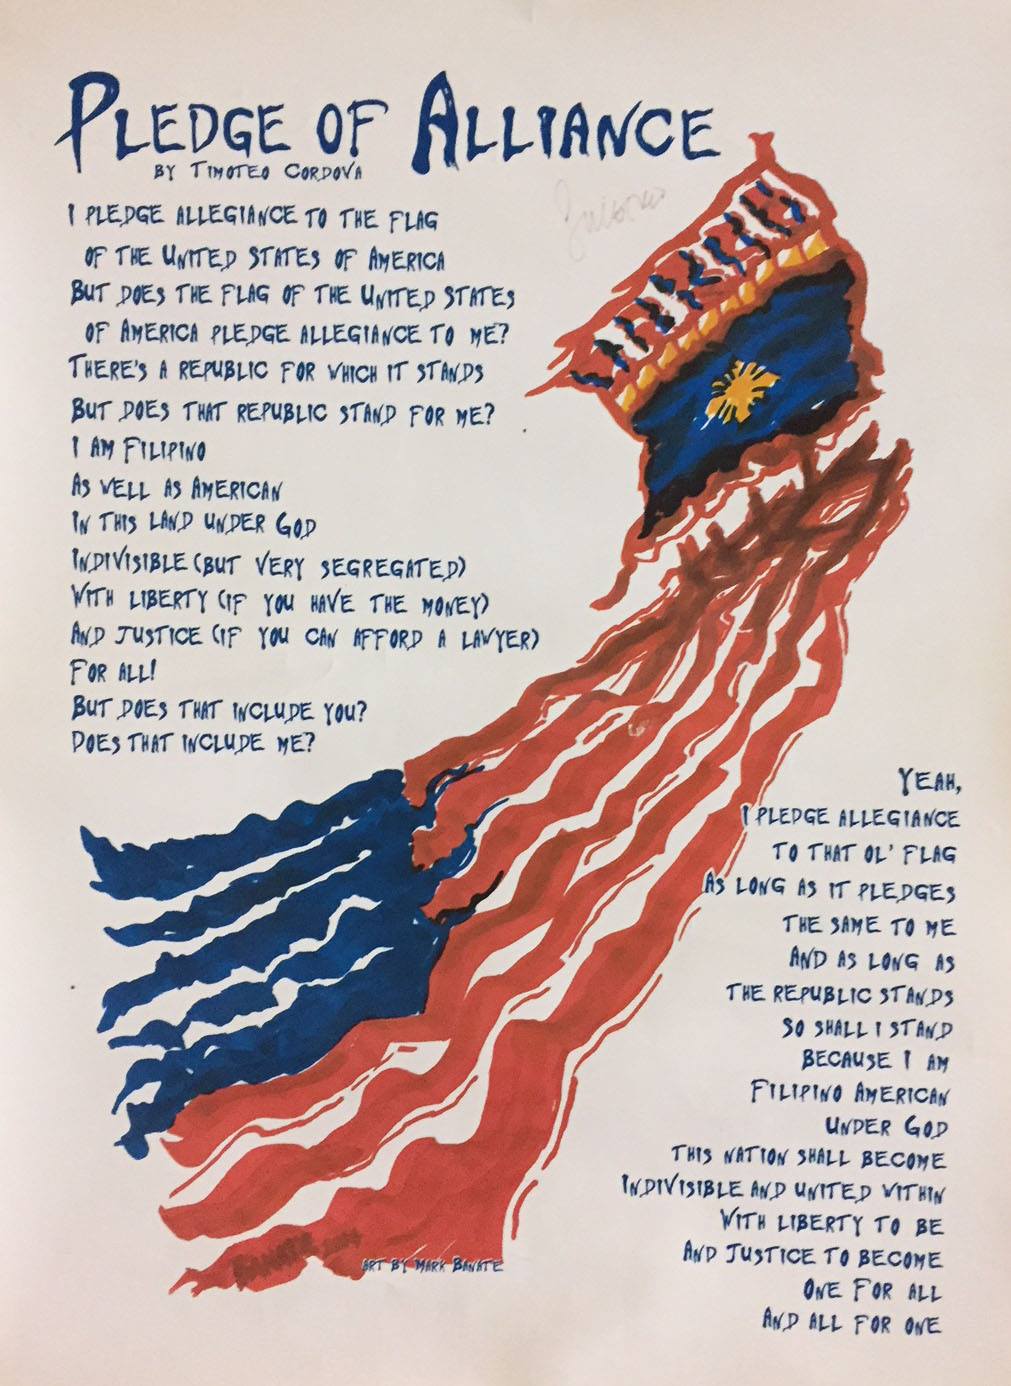 Pledge of Alliance
by Timoteo Cordova
I pledge allegiance to the flag
of the United States of America
But does the flag of the United States
of America pledge allegiance to me?
There's a republic for which it stands
But does that republic stand for me?
I am Filipino
As well as American
In this land under God
Indivisible (but very segregated)
With liberty (if you have the money)
And justice (if you can afford a lawyer)
For all!
But does that include you?
Does that include me?
Yeah,
I pledge allegiance
to that ol' flag
As long as it pledges
the same to me
And as long as
the republic stands
So shall I stand
Because I am
Filipino American
Under God
this nation shall become
Indivisible and united within
With liberty to be
And justice to become
One for all
And all for one
Art by Mark Banate